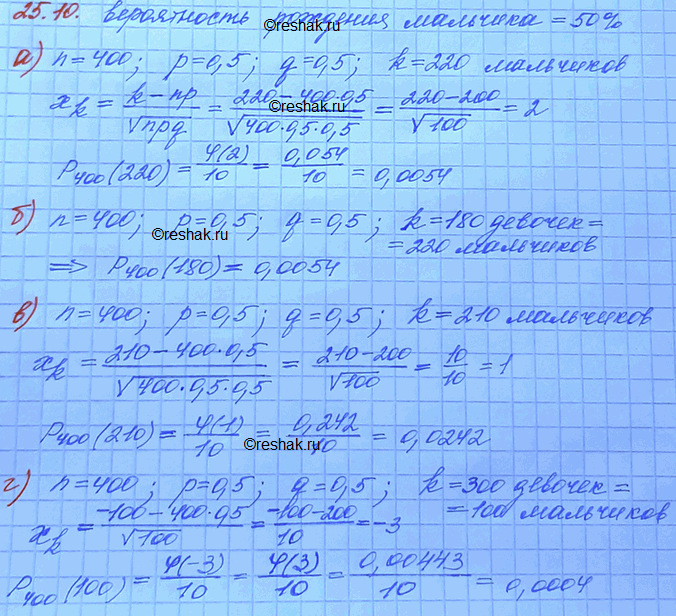 25.10. вероятность рождения мальчика = 50%
а) n=400; p=0,5; q=0,5; k=220 мальчиков
x_k = (k-np)/√npq = (220-400·0,5)/√(400·0,5·0,5) = (220-200)/√100 = 2
©reshak.ru
P_400(220) = φ(2)/10 = 0,054/10 = 0,0054
б) n=400; p=0,5; q=0,5; k=180 девочек=
=220 мальчиков
©reshak.ru
⟹ P_400(180) = 0,0054
в) n=400; p=0,5; q=0,5; k=210 мальчиков
x_k = (210-400·0,5)/√(400·0,5·0,5) = (210-200)/√100 = 10/10 = 1
©reshak.ru
P_400(210) = φ(1)/10 = 0,242/10 = 0,0242
©reshak.ru
г) n=400; p=0,5; q=0,5; k=300 девочек=
=100 мальчиков
x_k = (-100-400·0,5)/√100 = (-100-200)/10 = -3
P_400(100) = φ(-3)/10 = φ(3)/10 = 0,00443/10 = 0,0004